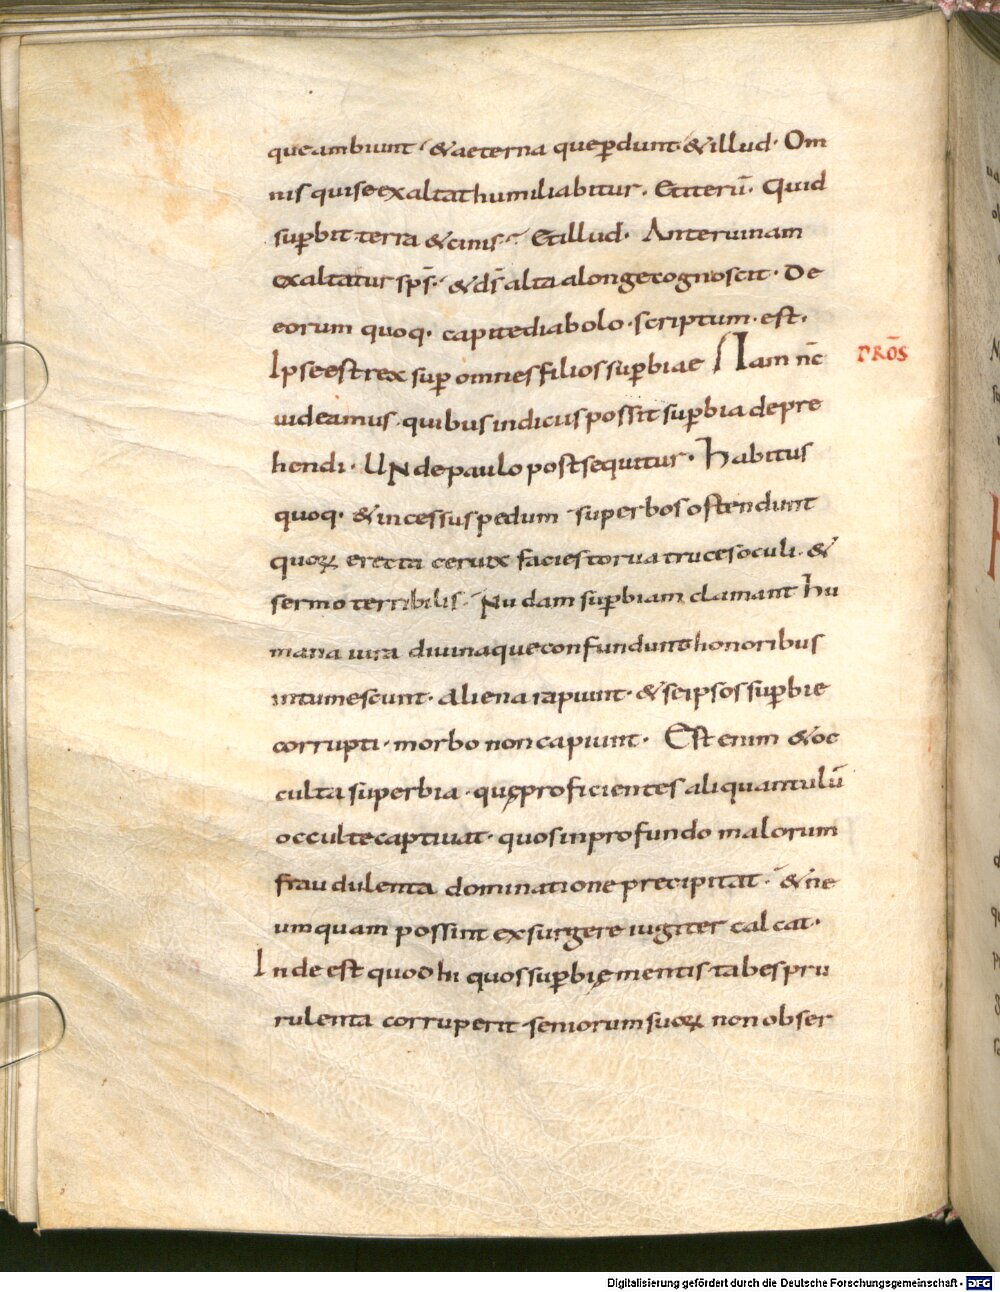 que ambiunt · & aeterna que ꝑdunt · & illud · Om
nis qui se exaltat humiliabitur · Et iterū · Quid
suꝑbit terra & cinis · Et illud · Ante ruinam
exaltatur sp̄s · & dn̄s alta a longe cognoscit · De
eorum quoq· capite diabolo · scriptum · est ·
Ipse est rex suꝑ omnes filios suꝑbiae Nam nc̄
PRŌS
uideamus · quibus indicius possit suꝑbia depre
hendi · UNde paulo post sequitur · Habitus
quoq· & incessus pedum superbos ostendunt
quoꝝ erecta ceruix facies torua truces oculi · &
sermo terribilis · Nudam suꝑbiam clamant hu
mana iura diuinaque confundunt honoribus
intumescunt · aliena rapiunt · & se ipsos suꝑbie
corrupti · morbo non capiunt · Est enim & oc
culta superbia · quę proficientes aliquantulū
occulte captiuat · quos in profundo malorum
fraudulenta dominatione precipitat · & ne
umquam possint exsurgere iugiter calcat ·
Inde est quod hi quos suꝑbię mentis tabes pru
rulenta corruperit seniorum suoꝝ non obser
Digitalisierung gefördert durch die Deutsche Forschungsgemeinschaft · DFG